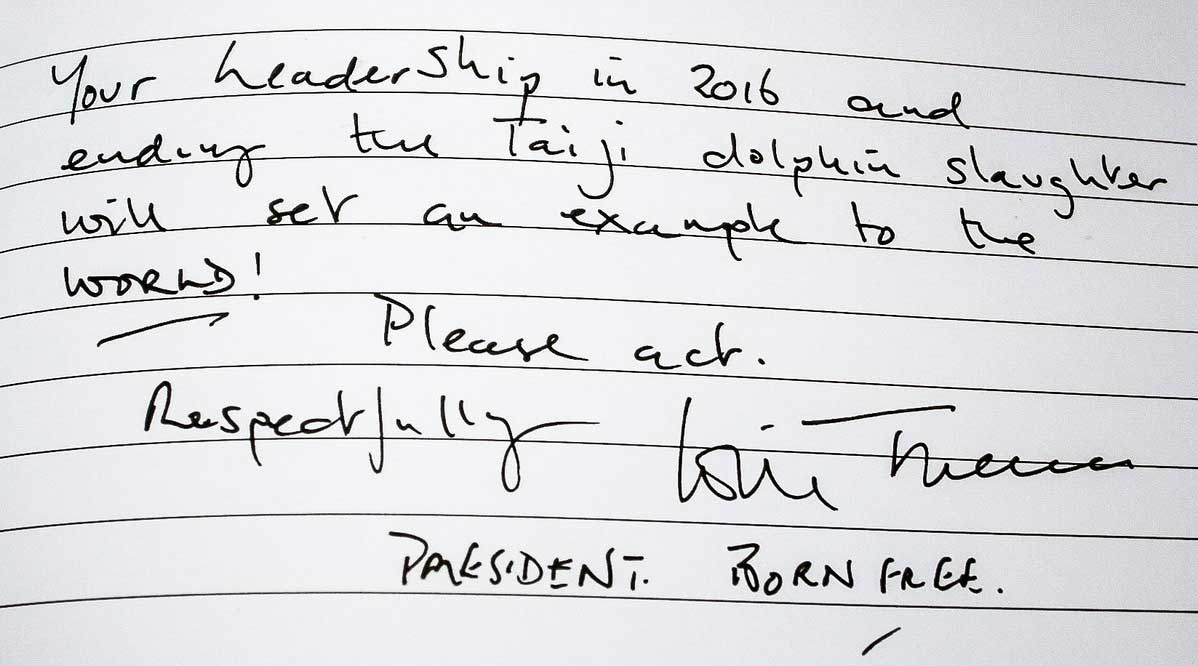 Your leadership in 2016 and
ending the Taiji dolphin slaughter
will set an example to the
WORLD!
Please act.
Respectfully
PRESIDENT. BORN FREE.